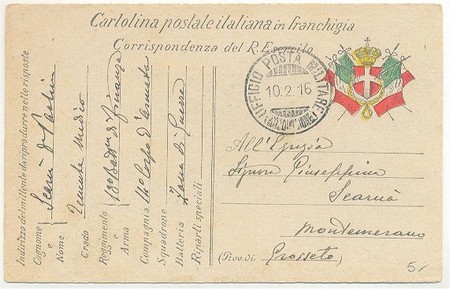 Cartolina postale italiana in franchigia
Corrispondenza del R. Esercito
UFFICIO POSTA MILITARE
10.2.16
Indirizzo del mittente da riprodurre nelle risposte
Cognome e Nome
Grado Tenente Medico
Reggimento e Arma 18° Batt. di Finanza
Compagnia 14° Corpo d'Armata
Squadrone Zona di Guerra
Batteria
Riparti speciali
All'Egregia
Signora Giuseppina
Montemerano
(Prov. di) Grosseto
5/